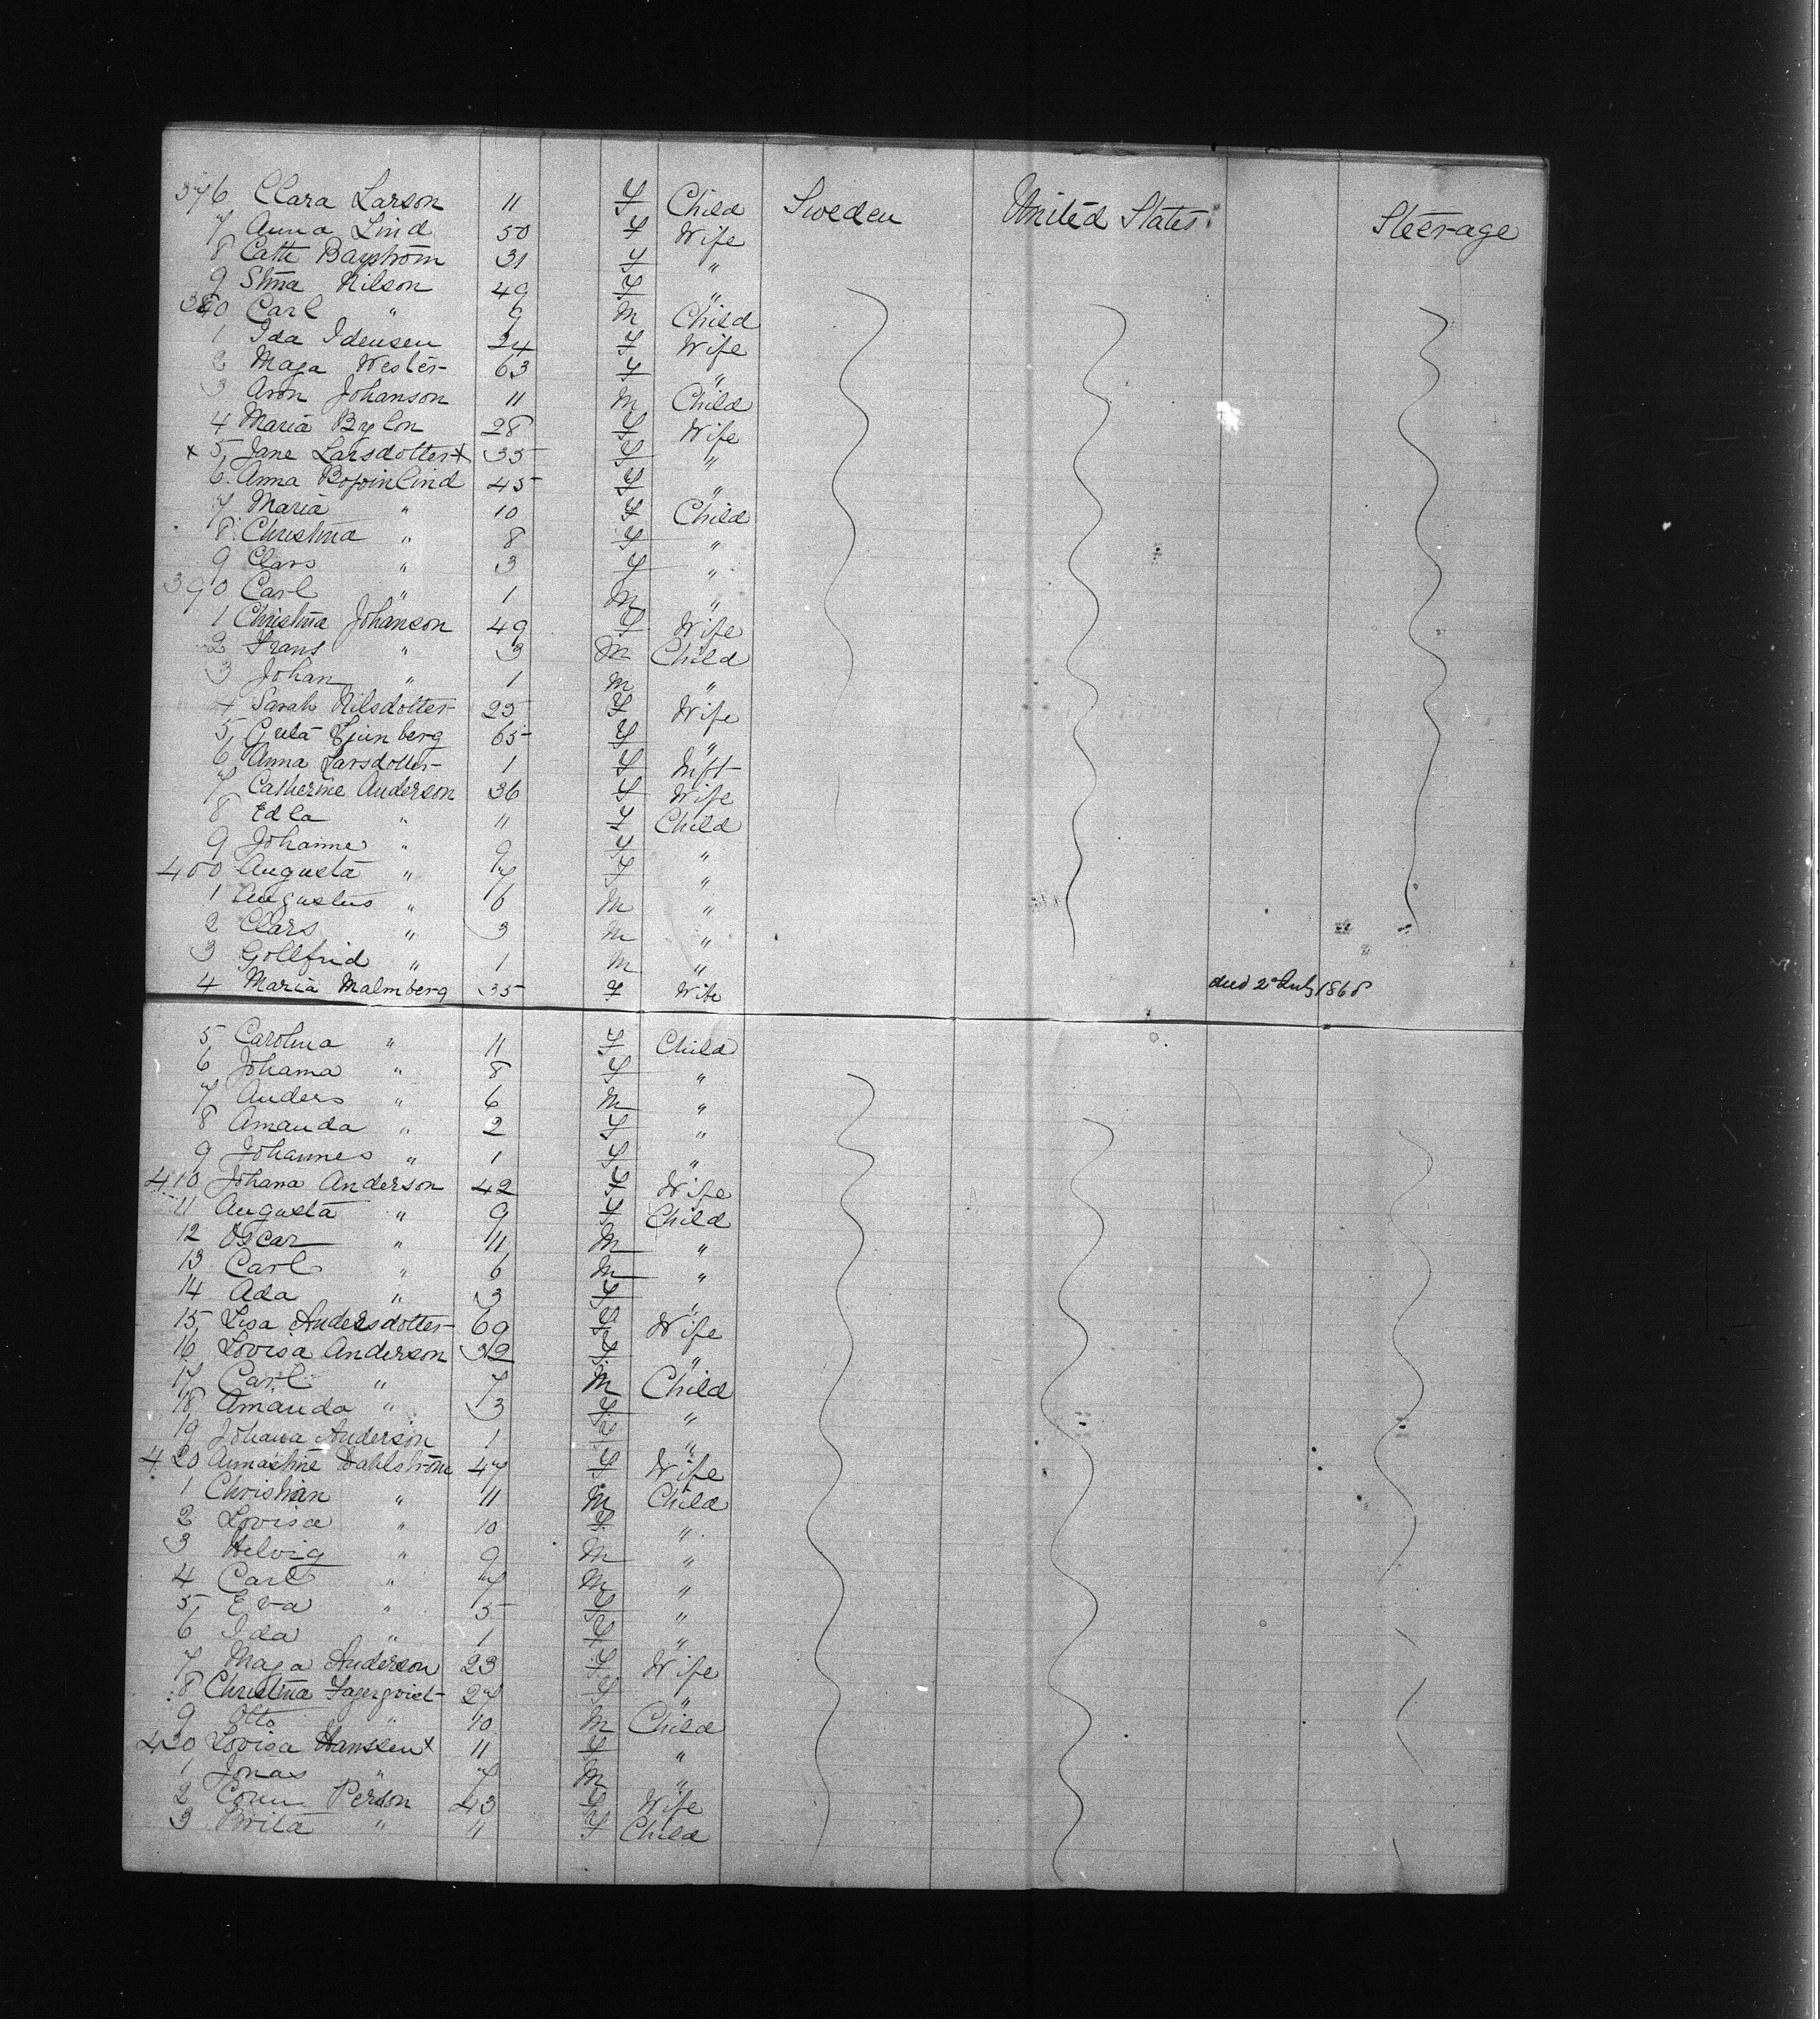 376 Clara Larson 11 F Child Sweden United States Steerage
7 Anna Lind 50 F Wife
8 Cath Baystrom 31 F "
9 Stina Nilson 49 F "
380 Carl " 9 M Child
1 Ida Idensen 24 F Wife
2 Maja Wester 63 F "
3 Aron Johanson 11 M Child
4 Maria Bylon 28 F Wife
x 5 Jane Larsdotter x 35 F "
6 Anna 45 F "
7 Maria " 10 F Child
8 Christina " 8 F "
9 Clars " 3 F "
390 Carl " 1 M "
1 Christina Johanson 49 F Wife
2 Frans " 3 M Child
3 Johan " 1 M "
4 Sarah Nilsdotter 25 F Wife
5 Greta 65 F "
6 Anna Larsdotter 1 F Inft
7 Catherine Anderson 36 F Wife
8 Edla " 11 F Child
9 Johanne " 9 F "
400 Augusta " 7 F "
1 Augustus " 6 M "
2 Clars " 3 M "
3 Gottfrid " 1 M "
4 Maria Malmberg 35 F Wife died 2d July 1868
5 Carolina " 11 F Child
6 Johana " 8 F "
7 Anders " 6 M "
8 Amanda " 2 F "
9 Johannes " 1 F "
410 Johana Anderson 42 F Wife
11 Augusta " 9 F Child
12 Oscar " 11 M "
13 Carl " 6 M "
14 Ada " 3 F "
15 Lisa Andersdotter 69 F Wife
16 Lovisa Anderson 32 F "
17 Carl " 7 M Child
18 Amanda " 3 F "
19 Johana Anderson 1 F "
420 Annastine Dahlstrom 47 F Wife
1 Christian " 11 M Child
2 Lovisa " 10 F "
3 Helvig " 9 M "
4 Carl " 7 M "
5 Eva " 5 F "
6 Ida " 1 F "
7 Maja Anderson 23 F Wife
8 Christina Fagerqvist 27 F "
9 Otto " 10 M Child
430 Lovisa Hanssen x 11 F "
1 Jonas " 7 M "
2 Person 43 F Wife
3 Brita " 11 F Child